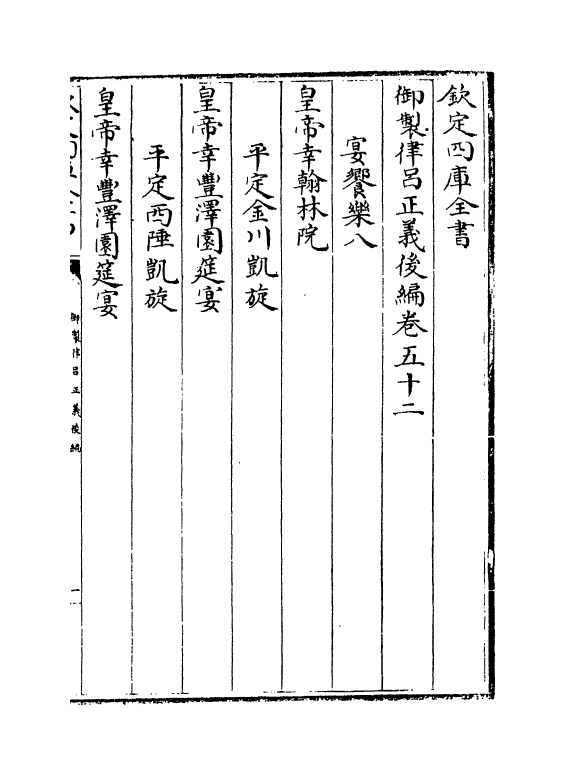 欽定四庫全書
御製律呂正義後編卷五十二
宴饗樂八
皇帝幸翰林院
平定金川凱旋
皇帝幸豐澤園筵宴
平定西陲凱旋
皇帝幸豐澤園筵宴
御製律呂正義後編
一